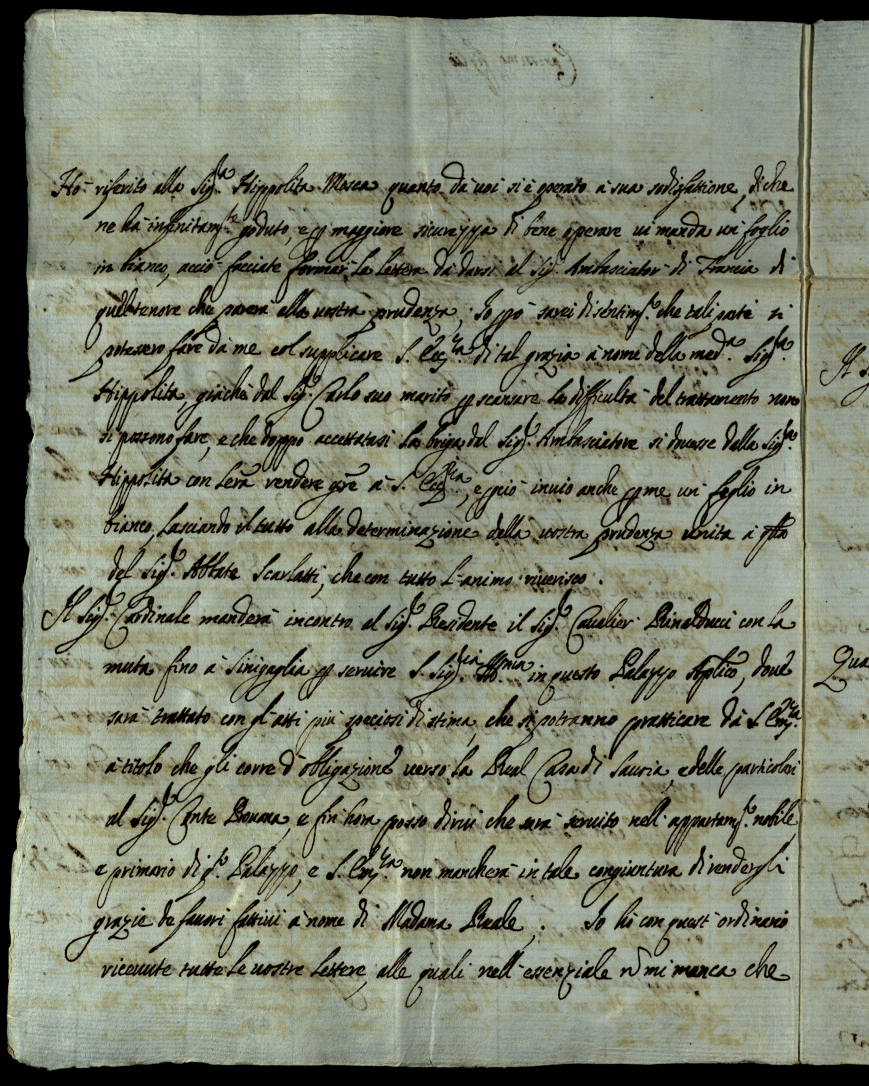 Ho riferito alla Sig.ra Hippolita Mosca quanto da voi si è operato à sua sodisfattione, di che
ne hà infinitam.te goduto, e p maggiore sicurezza di bene operare vi manda un foglio
in bianco, acciò facciate formar la lettera da darsi al Sig.r Ambasciator di Francia di
quel tenore che parerà alla vostra prudenza, Io pò sarei di sentim.to che tali parti si
potessero fare da me col supplicare S. Ecc.za di tal grazia à nome della med.a Sig.ra
Hippolita, giàche dal Sig.r Carlo suo marito p scansare la difficultà del trattamento non
si possono fare, e che doppo accettatasi la briga dal Sig.r Ambasciatore si dovesse dalla Sig.ra
Hippolita con lera rendere gre à S. Ecc.za, e pciò invio anche p me un foglio in
bianco, lasciando il tutto alla determinazione della vostra prudenza unita à qlla
del Sig.r Abbate Scarlatti, che con tutto l'animo riverisco.
Il Sig.r Cardinale manderà incontro al Sig.r Residente il Sig.r Cavalier Rinalducci con la
muta fino à Sinigaglia p servire S. Sig.ria Ill.ma in questo Palazzo Aplico, dove
sarà trattato con gl'atti più speciosi di stima, che si potranno pratticare da S. Em.za
à titolo che gli corre d'obligazione verso la Real Casa di Savoia, e delle particolari
al Sig.r Conte, e fin hora posso dirvi che sarà servito nell'appartam.to nobile
e primario di q.to Palazzo, e S. Em.za non mancherà in tale congiuntura di rendergli
grazie de favori fattivi à nome di Madama Reale. Io hò con quest'ordinario
ricevute tutte le vostre lettere, alle quali nell'essenziale nō mi manca che
Il S
Qua